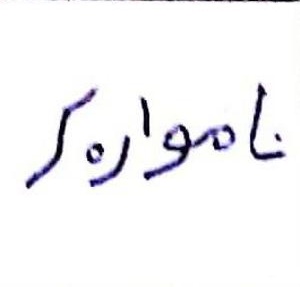 نامواره کر